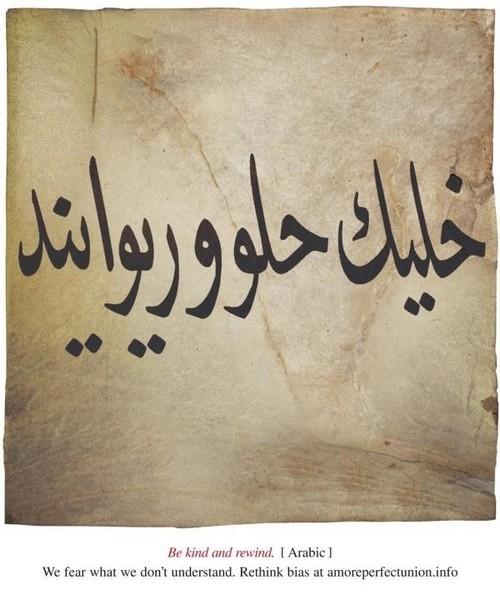 خليك حلو و ريوايند
Be kind and rewind. [ Arabic ]
We fear what we don't understand. Rethink bias at amoreperfectunion.info